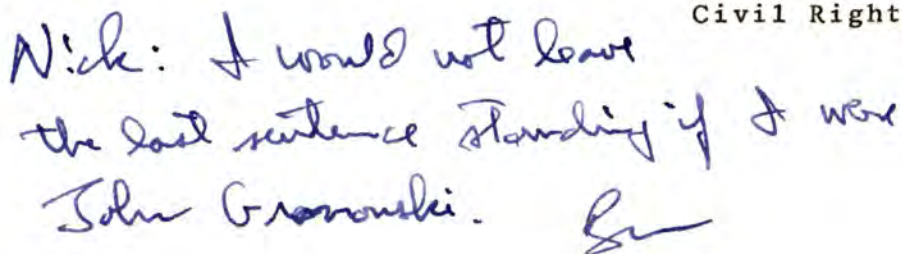 Civil Right
Nick: I would not leave
the last sentence standing if I were
John Gronouski.